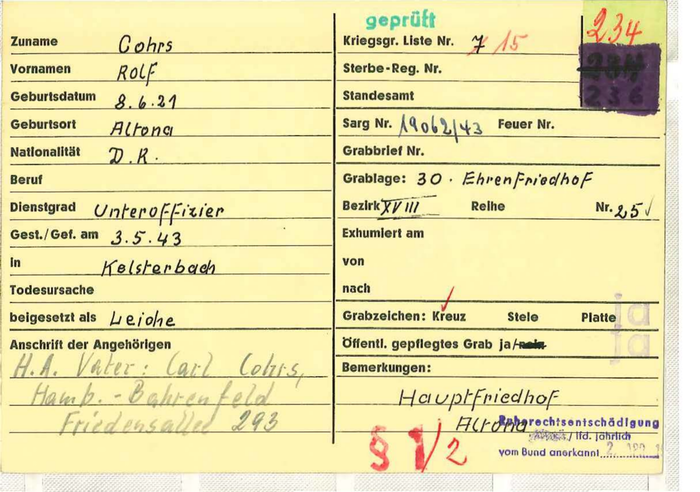 geprüft
234
Zuname Cohrs
Vornamen Rolf
Geburtsdatum 8.6.21
Geburtsort Altona
Nationalität D.R.
Beruf
Dienstgrad Unteroffizier
Gest./Gef. am 3.5.43
in Kelsterbach
Todesursache
beigesetzt als Leiche
Anschrift der Angehörigen
H.A. Vater: Carl Cohrs,
Hamb.-Bahrenfeld
Friedensallee 293
Kriegsgr. Liste Nr. 7 15
Sterbe-Reg. Nr.
234
Standesamt
236
Sarg Nr. 19062/43 Feuer Nr.
Grabbrief Nr.
Grablage: 30. Ehrenfriedhof
Bezirk XVIII Reihe Nr. 25
Exhumiert am
von
nach
Grabzeichen: Kreuz Stele Platte
ja
Öffentl. gepflegtes Grab ja/nein
ja
Bemerkungen:
Hauptfriedhof
Altona
Ruherechtsentschädigung
/ lfd. jährlich
vom Bund anerkannt
§ 1/2